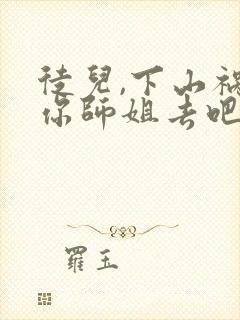 徒兒,下山禍
你師姐去吧
羅玉